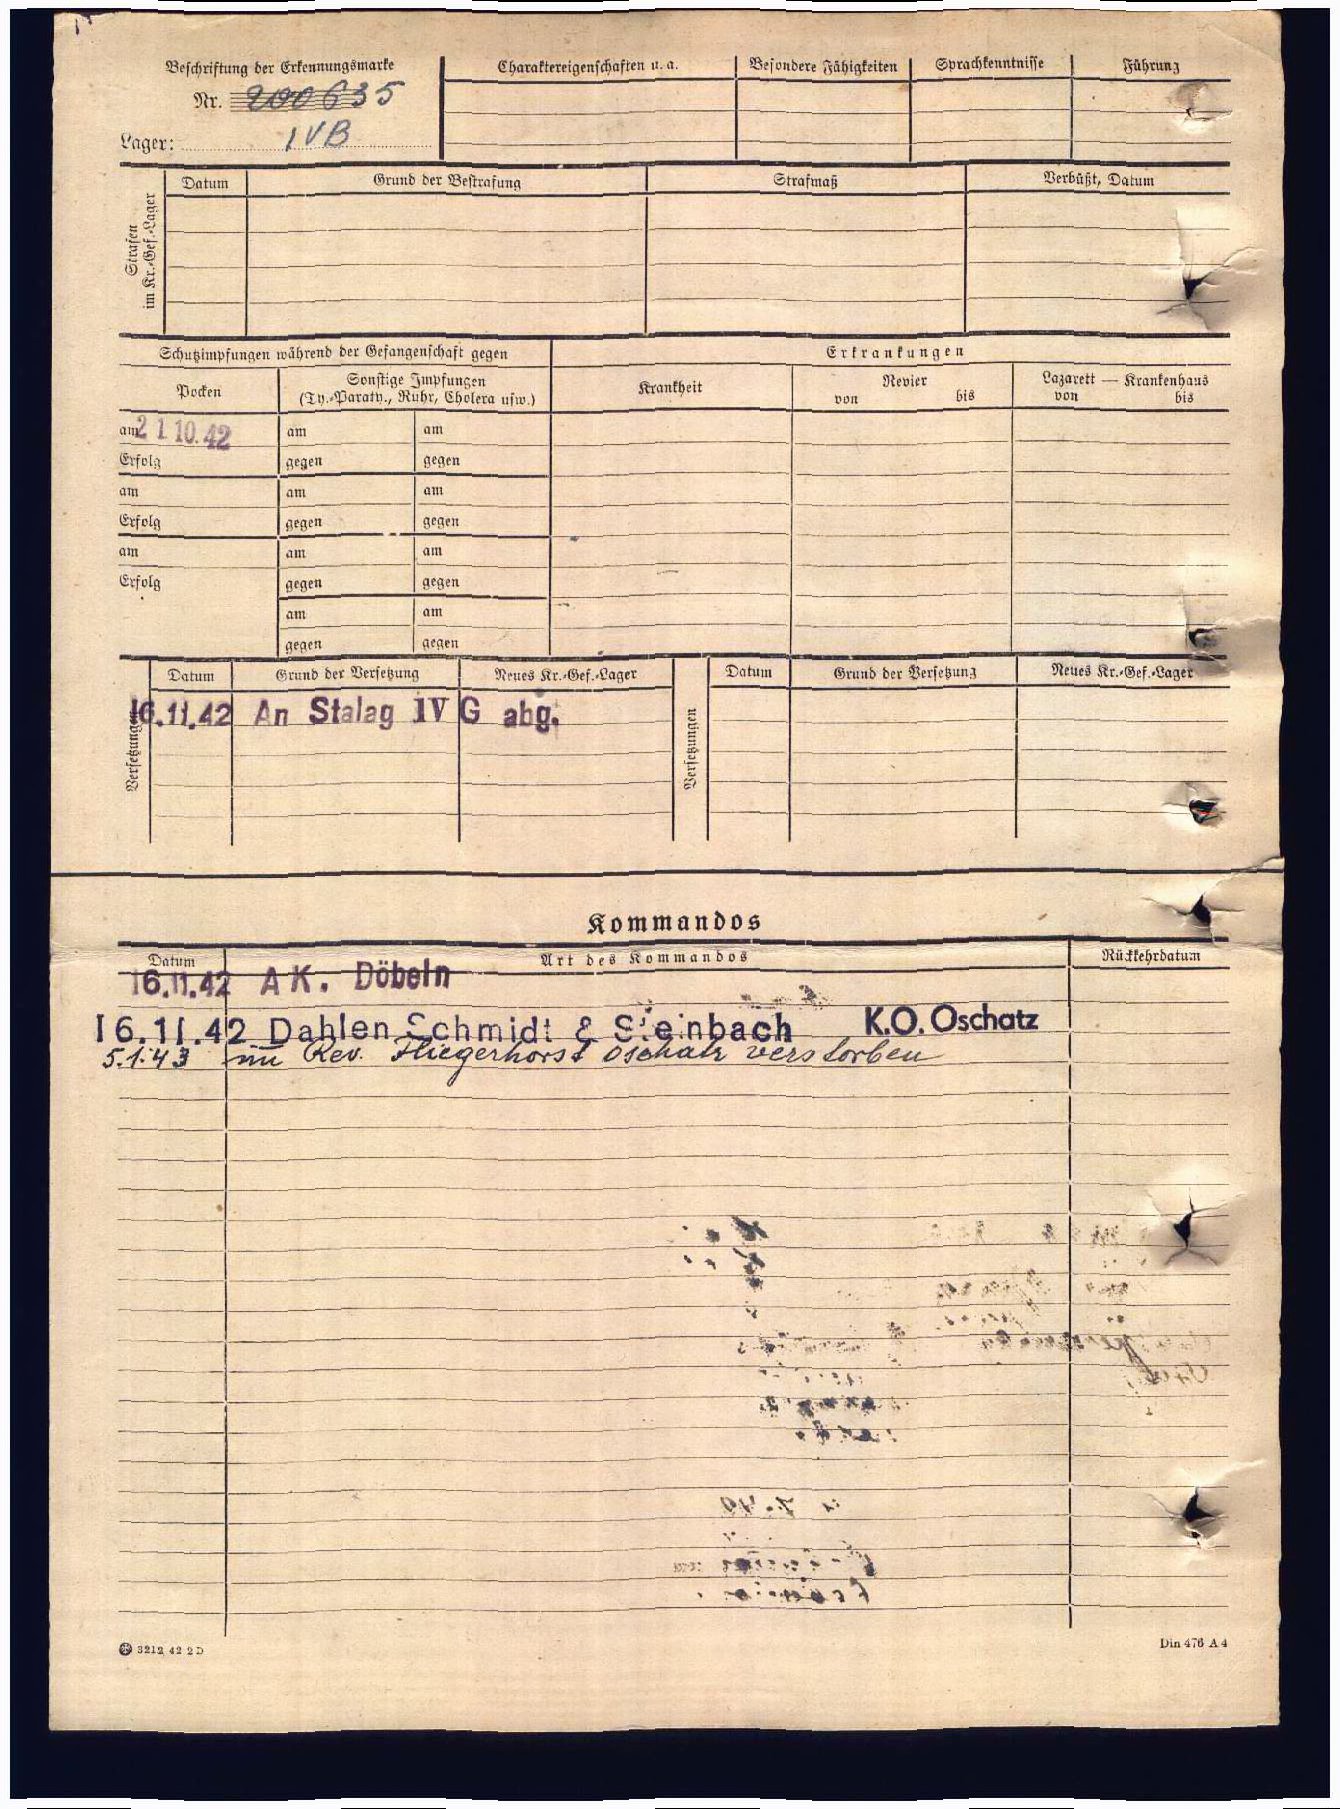 Beschriftung der Erkennungsmarke
Nr. 200635
Lager: IVB
Charaktereigenschaften u. a.
Besondere Fähigkeiten
Sprachkenntnisse
Führung
Strafen im Kr.-Gef.-Lager
Datum
Grund der Bestrafung
Strafmaß
Verbüßt, Datum
Schutzimpfungen während der Gefangenschaft gegen
Erkrankungen
Pocken
Sonstige Impfungen
(Ty.-Paraty., Ruhr, Cholera usw.)
Krankheit
Revier
von bis
Lazarett — Krankenhaus
von bis
am 21.10.42 am am
Erfolg gegen gegen
am am am
Erfolg gegen gegen
am am am
Erfolg gegen gegen
am am
gegen gegen
Versetzungen
Datum Grund der Versetzung Neues Kr.-Gef.-Lager
16.11.42 An Stalag IV G abg.
Versetzungen
Datum Grund der Versetzung Neues Kr.-Gef.-Lager
Kommandos
Datum Art des Kommandos Rückkehrdatum
16.11.42 A K. Döbeln
16.11.42 Dahlen Schmidt & Steinbach K.O. Oschatz
5.1.43 im Rev. Fliegerhorst Oschatz verstorben
3212 42 2 D
Din 476 A 4